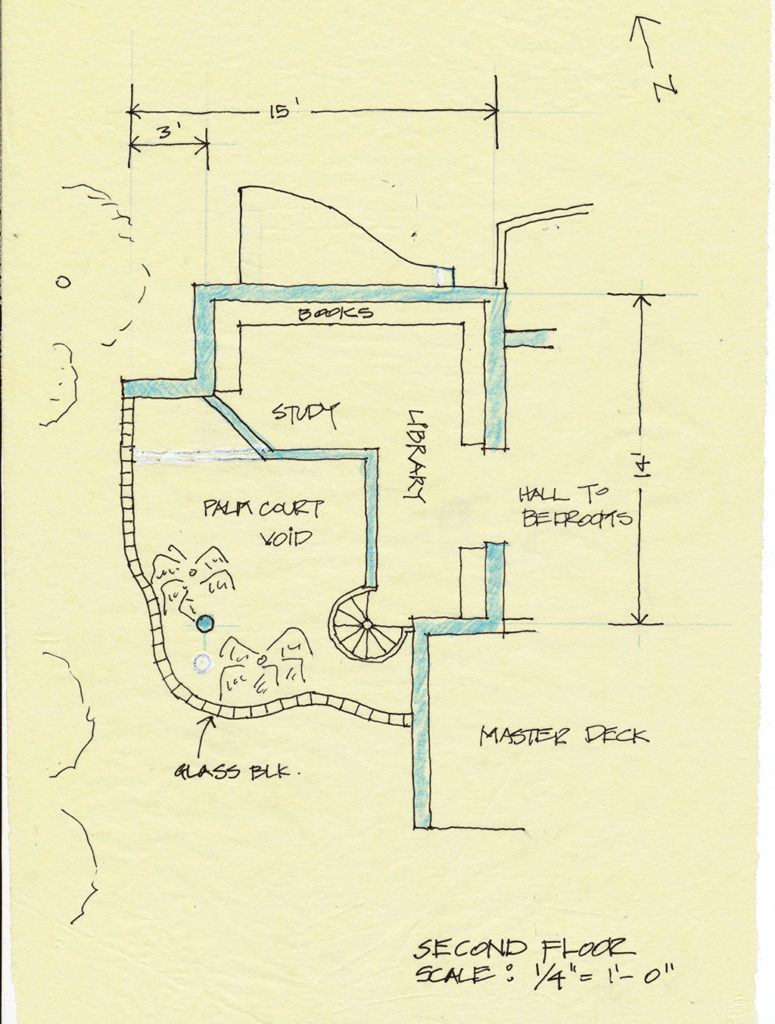 N
15'
3'
BOOKS
STUDY
LIBRARY
14'
HALL TO
BEDROOMS
PALM COURT
VOID
MASTER DECK
GLASS BLK.
SECOND FLOOR
SCALE: 1/4" = 1'-0"